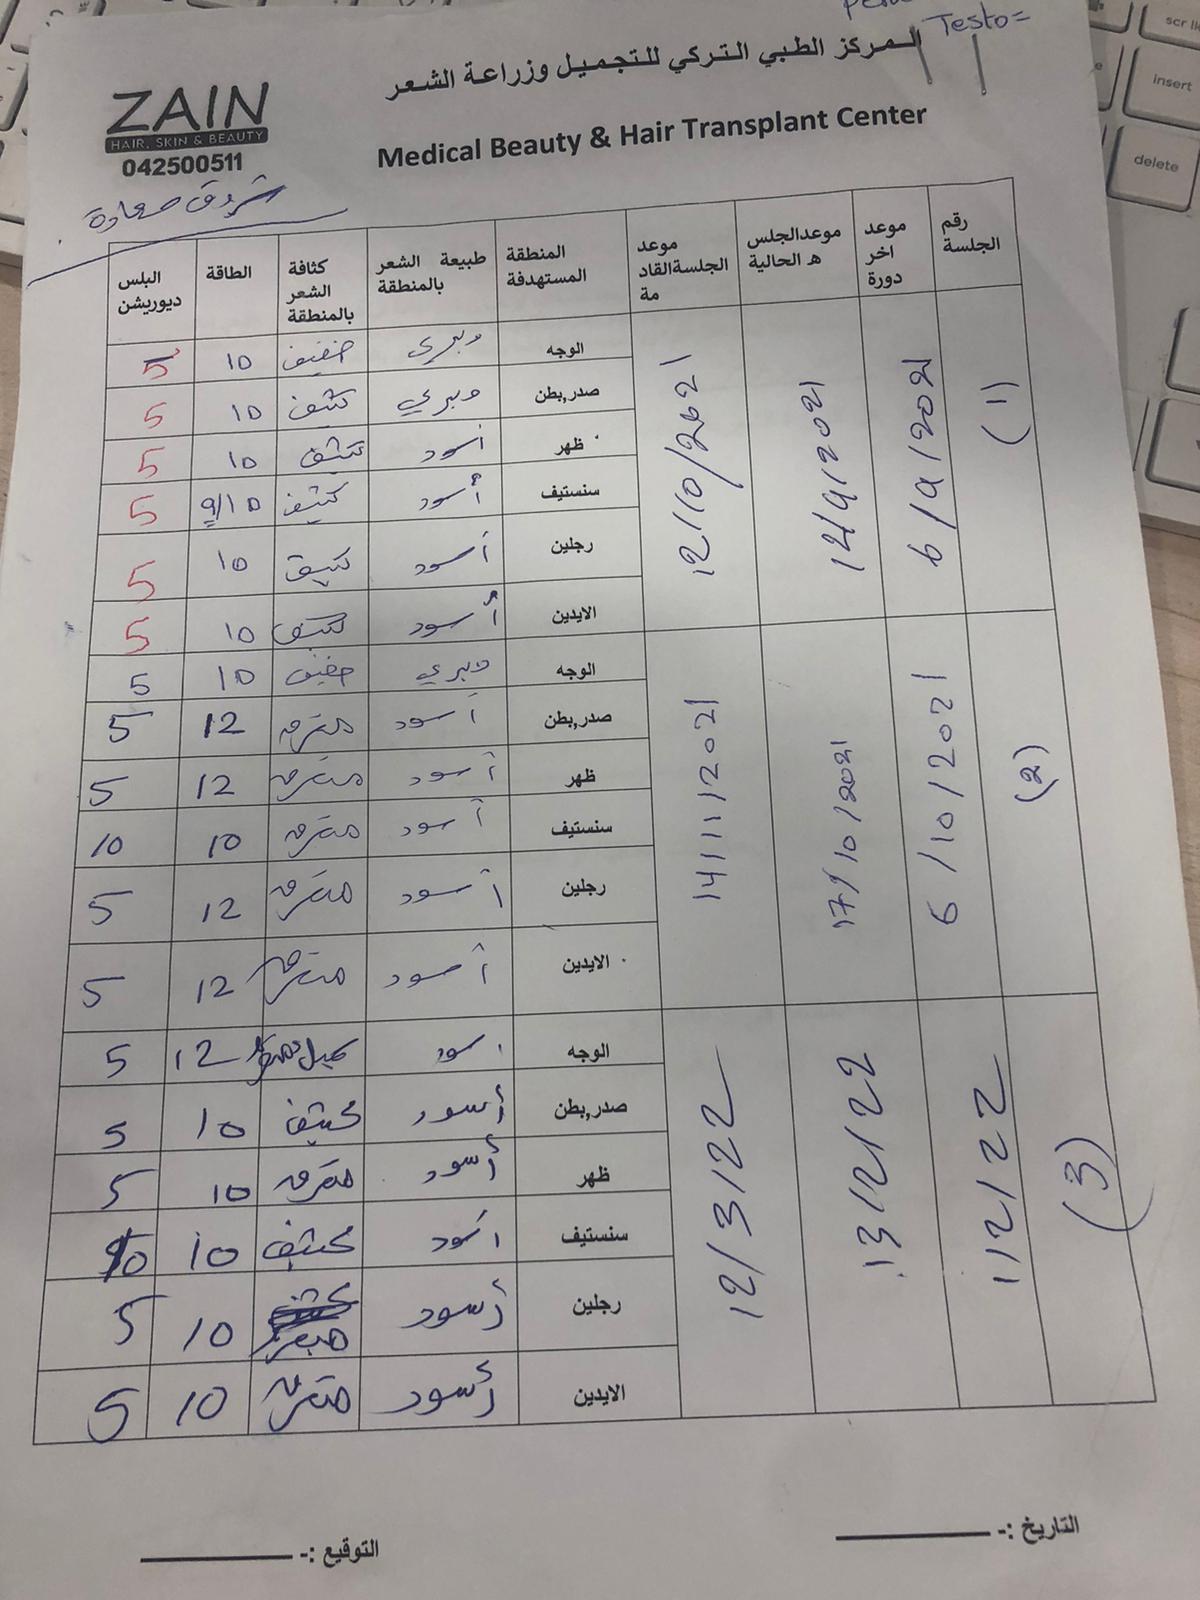 Testo=
المركز الطبي التركي للتجميل وزراعة الشعر
ZAIN
HAIR, SKIN & BEAUTY
042500511
Medical Beauty & Hair Transplant Center
شروق سعادة
رقم الجلسة | موعد اخر دورة | موعدالجلس ه الحالية | موعد الجلسةالقاد مة | المنطقة المستهدفة | طبيعة الشعر بالمنطقة | كثافة الشعر بالمنطقة | الطاقة | البلس ديوريشن
(1) | 6/9/2021 | 12/9/2021 | 12/10/2021
الوجه | وبري | خفيف | 10 | 5
صدر,بطن | وبري | كثيف | 10 | 5
ظهر | أسود | كثيف | 10 | 5
سنستيف | أسود | كثيف | 9/10 | 5
رجلين | أسود | كثيف | 10 | 5
الايدين | أسود | كثيف | 10 | 5
(2) | 6/10/2021 | 17/10/2021 | 14/11/2021
الوجه | وبري | خفيف | 10 | 5
صدر,بطن | أسود | متفرق | 12 | 5
ظهر | أسود | متفرق | 12 | 5
سنستيف | أسود | متفرق | 10 | 10
رجلين | أسود | متفرق | 12 | 5
الايدين | أسود | متفرق | 12 | 5
(3) | 1/2/22 | 13/2/22 | 12/3/22
الوجه | اسود | 12 | 5
صدر,بطن | أسود | كثيف | 10 | 5
ظهر | أسود | متفرق | 10 | 5
سنستيف | اسود | كثيف | 10 | 10
رجلين | أسود | 10 | 5
الايدين | أسود | متفرق | 10 | 5
التاريخ :-
التوقيع :-
scr
insert
delete